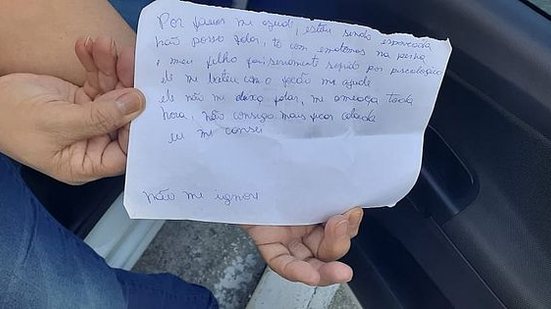 Por favor me ajud, estou sendo espancada
não posso falar, to com ematomas na perna
e meu filho faz seriamente seguido por piscologico
ele mi bateu com o facão me ajude
ele não mi deixa falar, mi ameaça toda
hora, não consigo mais ficar calada
eu mi cansei
não mi ignore